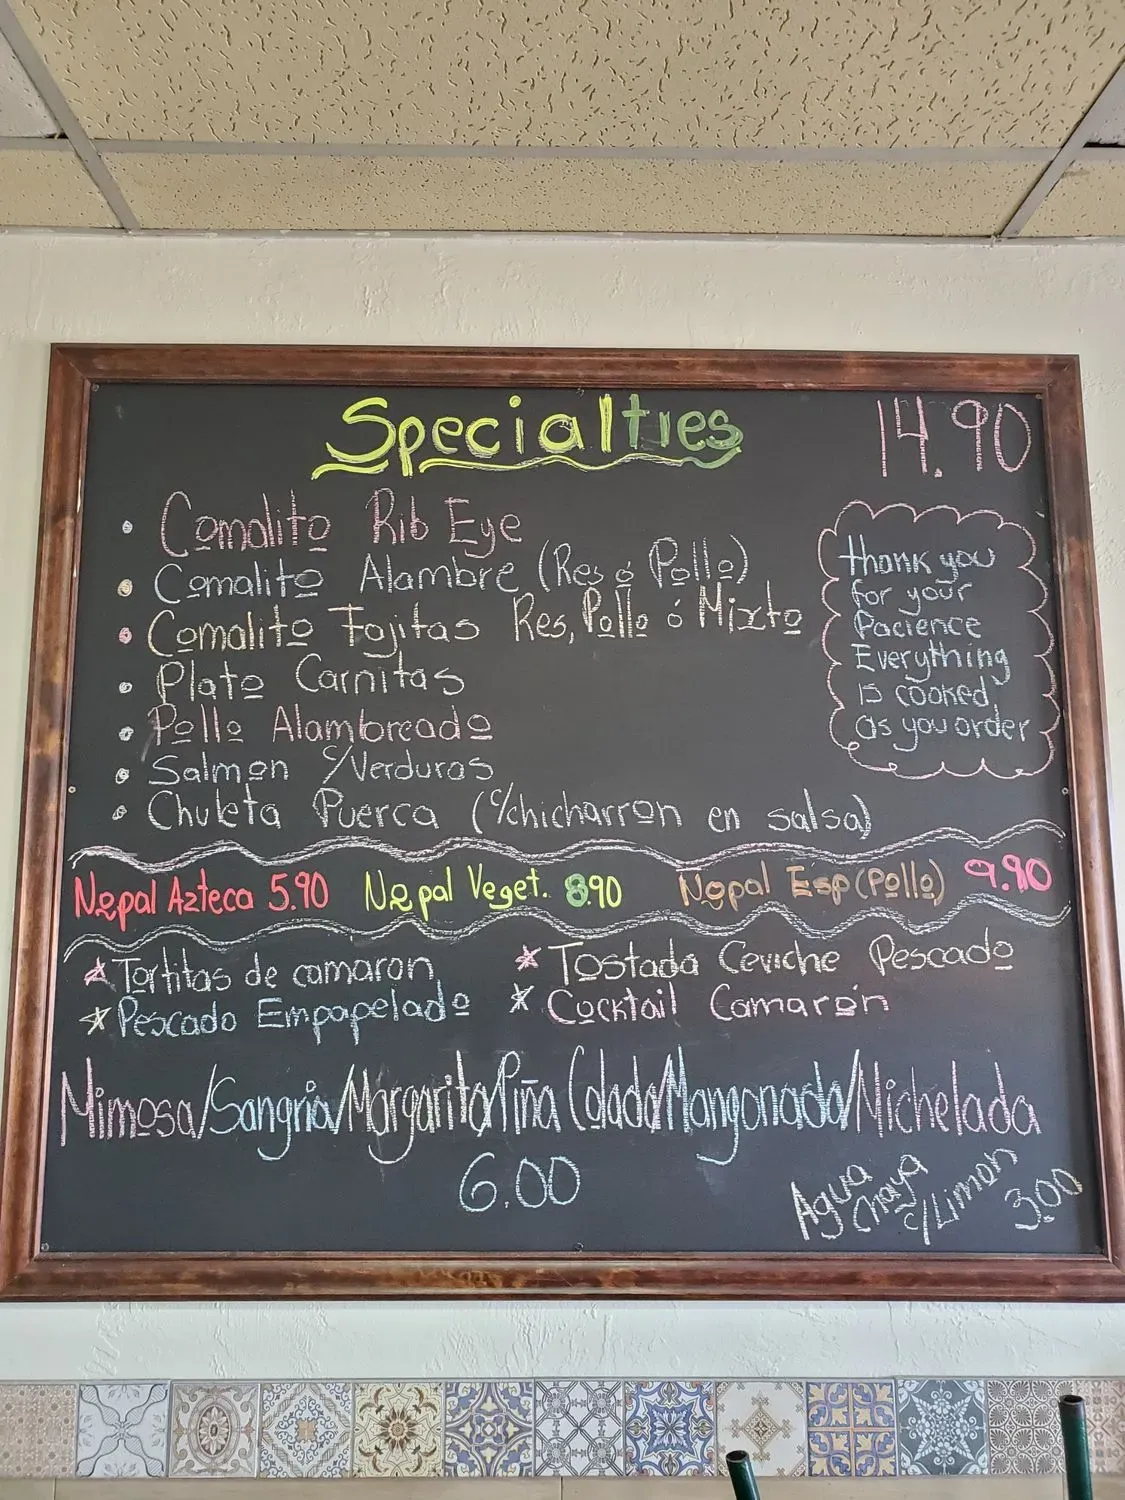 Specialties 14.90
Comalito Rib Eye
Comalito Alambre (Res ó Pollo)
Comalito Fajitas Res, Pollo ó Mixto
Plato Carnitas
Pollo Alambreado
Salmon c/Verduras
Chuleta Puerca (c/chicharron en salsa)
thank you
for your
Pacience
Everything
is cooked
as you order
Nopal Azteca 5.90 Nopal Veget. 8.90 Nopal Esp (Pollo) 9.90
Tortitas de camaron
Pescado Empapelado
Tostada Ceviche Pescado
Cocktail Camarón
Mimosa/Sangria/Margarita/Piña Colada/Mangonada/Michelada
6.00
Agua
Chaya
c/Limon
3.00